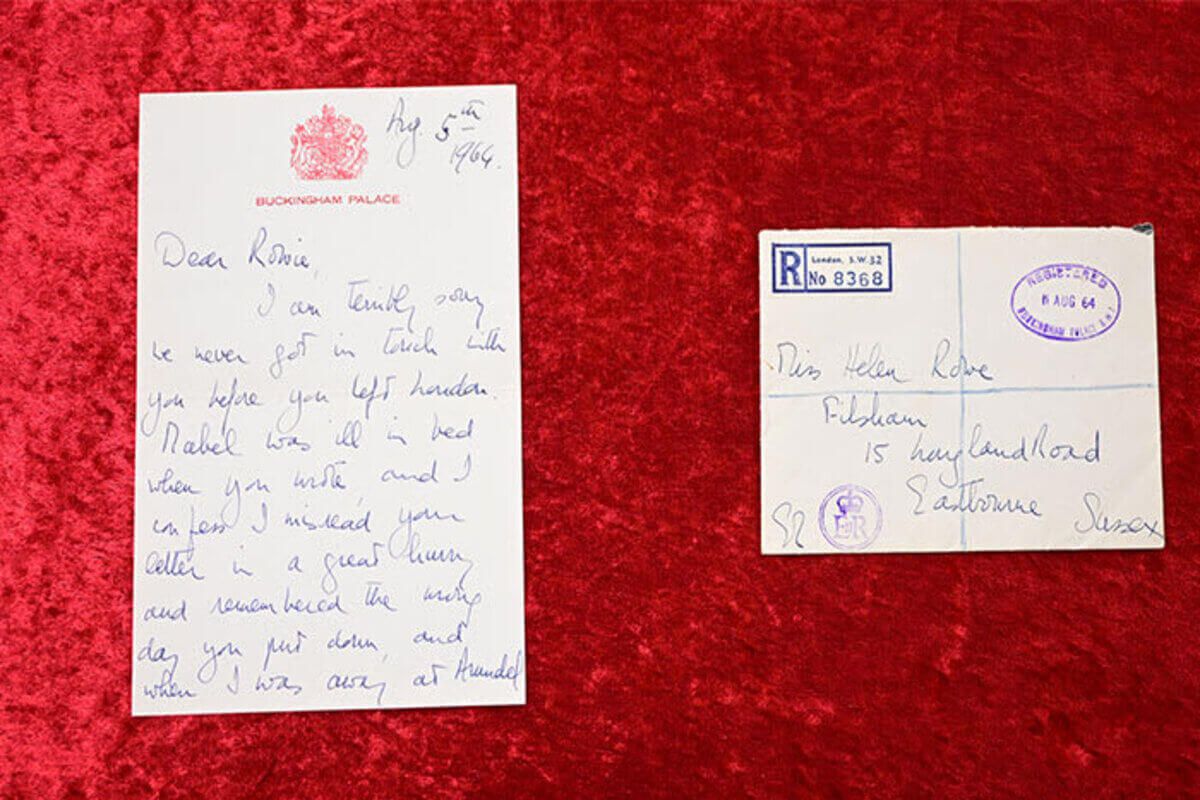 Aug. 5th
1964.
BUCKINGHAM PALACE
Dear Rowie,
I am terribly sorry
we never got in touch with
you before you left London.
Mabel was ill in bed
when you wrote, and I
confess I misread your
letter in a great hurry
and remembered the wrong
day you put down, and
when I was away at Arundel
R
London, S.W.32
No 8368
REGISTERED
AUG 64
BUCKINGHAM PALACE S.W.1
Miss Helen Rowe
Filsham
15 Road
Eastbourne
Sussex
ER
EIIR